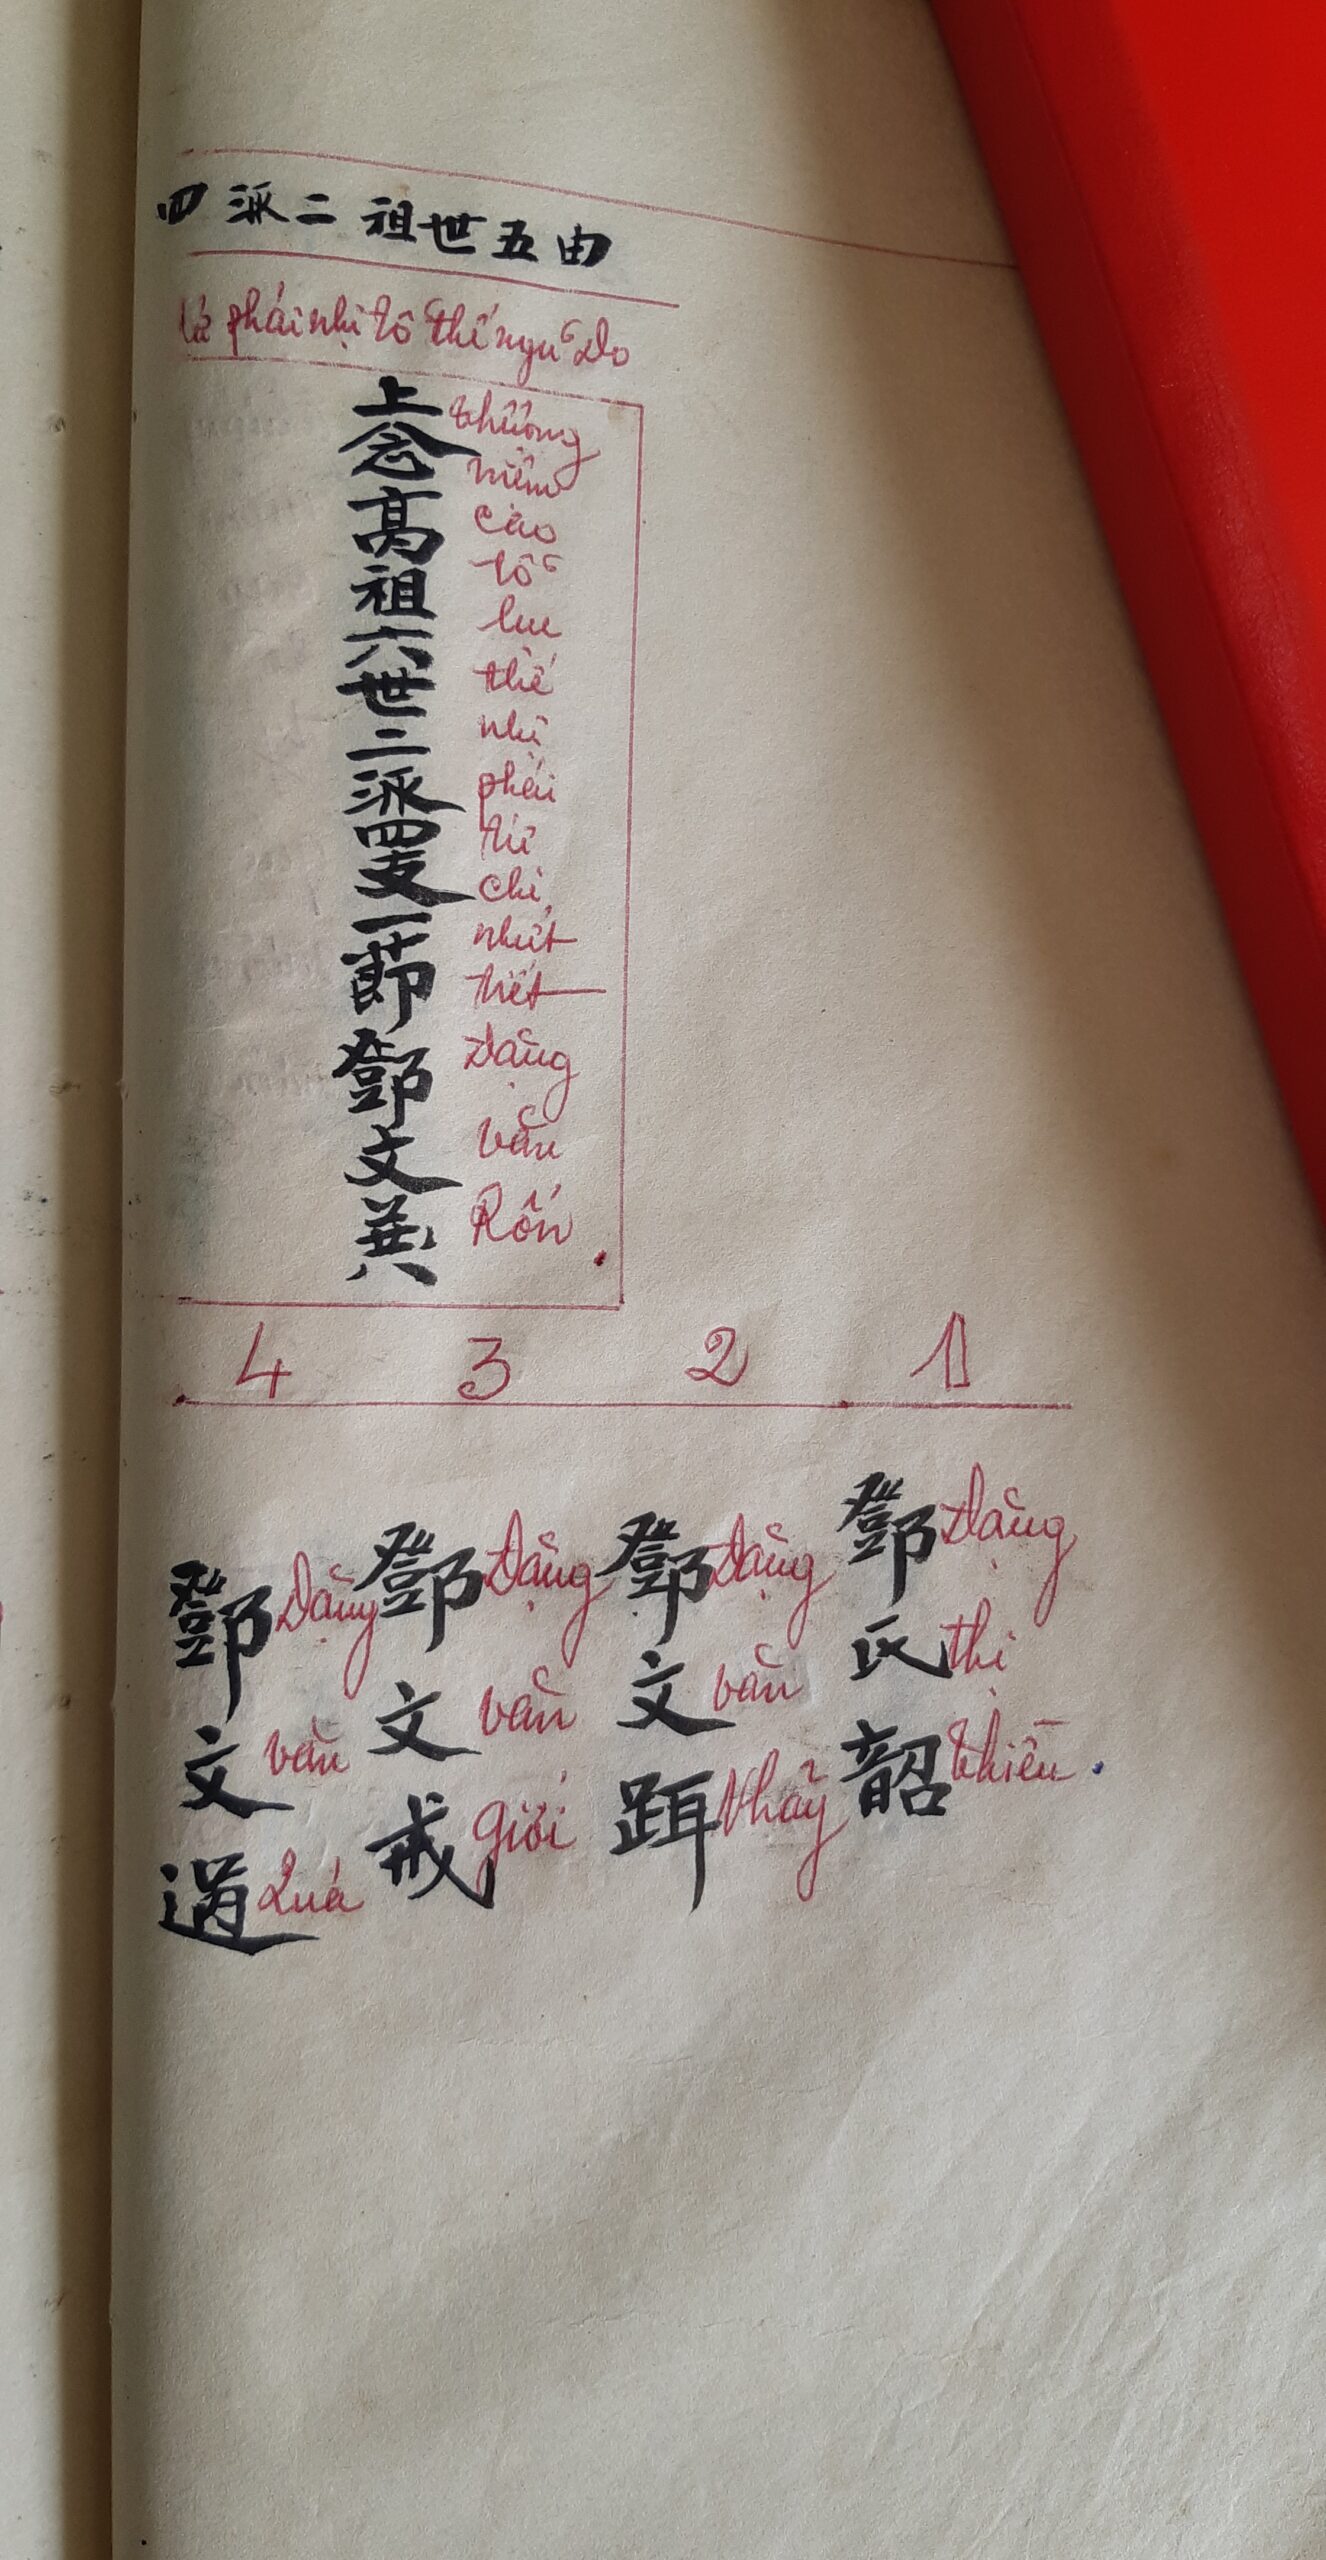 四派二祖世五由
tứ phái nhị tổ thế ngũ do
上念高祖六世二派四支一節鄧文
thượng niệm cao tổ lục thế nhị phái tứ chi nhất tiết Đặng văn Rốn
4 3 2 1
鄧氏韶
Đặng thị thiều
鄧文跴
Đặng văn thảy
鄧文戒
Đặng văn giới
鄧文過
Đặng văn Quá